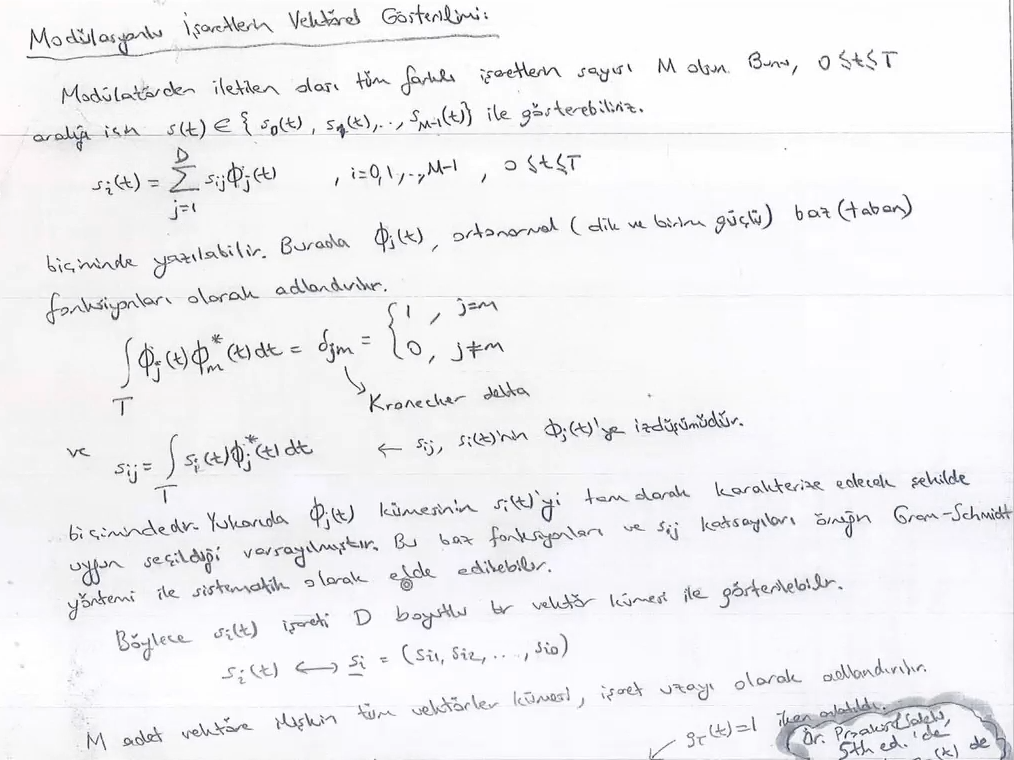 Modülasyonlu İşaretlerin Vektörel Gösterilimi:
Modülatörden iletilen olası tüm farklı işaretlerin sayısı M olsun. Bunu, 0 ≤ t ≤ T
aralığı için s(t) ∈ { s₀(t), s₁(t), .., s_{M-1}(t)} ile gösterebiliriz.
s_i(t) = Σ_{j=1}^{D} s_{ij} ϕ_j(t) , i=0,1,..,M-1 , 0 ≤ t ≤ T
biçiminde yazılabilir. Burada ϕ_j(t), ortonormal (dik ve birim güçlü) baz (taban)
fonksiyonları olarak adlandırılır.
∫_T ϕ_j(t) ϕ_m^*(t) dt = δ_{jm} = { 1 , j=m
0 , j≠m
Kronecker delta
ve s_{ij} = ∫_T s_i(t) ϕ_j^*(t) dt ← s_{ij}, s_i(t)'nin ϕ_j(t)'ye izdüşümüdür.
biçimindedir. Yukarıda ϕ_j(t) kümesinin s_i(t)'yi tam olarak karakterize edecek şekilde
uygun seçildiği varsayılmıştır. Bu baz fonksiyonları ve s_{ij} katsayıları örneğin Gram-Schmidt
yöntemi ile sistematik olarak elde edilebilir.
Böylece s_i(t) işareti D boyutlu bir vektör kümesi ile gösterilebilir.
s_i(t) ↔ s_i = (s_{i1}, s_{i2}, ..., s_{iD})
M adet vektöre ilişkin tüm vektörler kümesi, işaret uzayı olarak adlandırılır.
g_T(t)=1 iken anlatıldı.
Dr. Proakis
5th ed.'de
(t) de